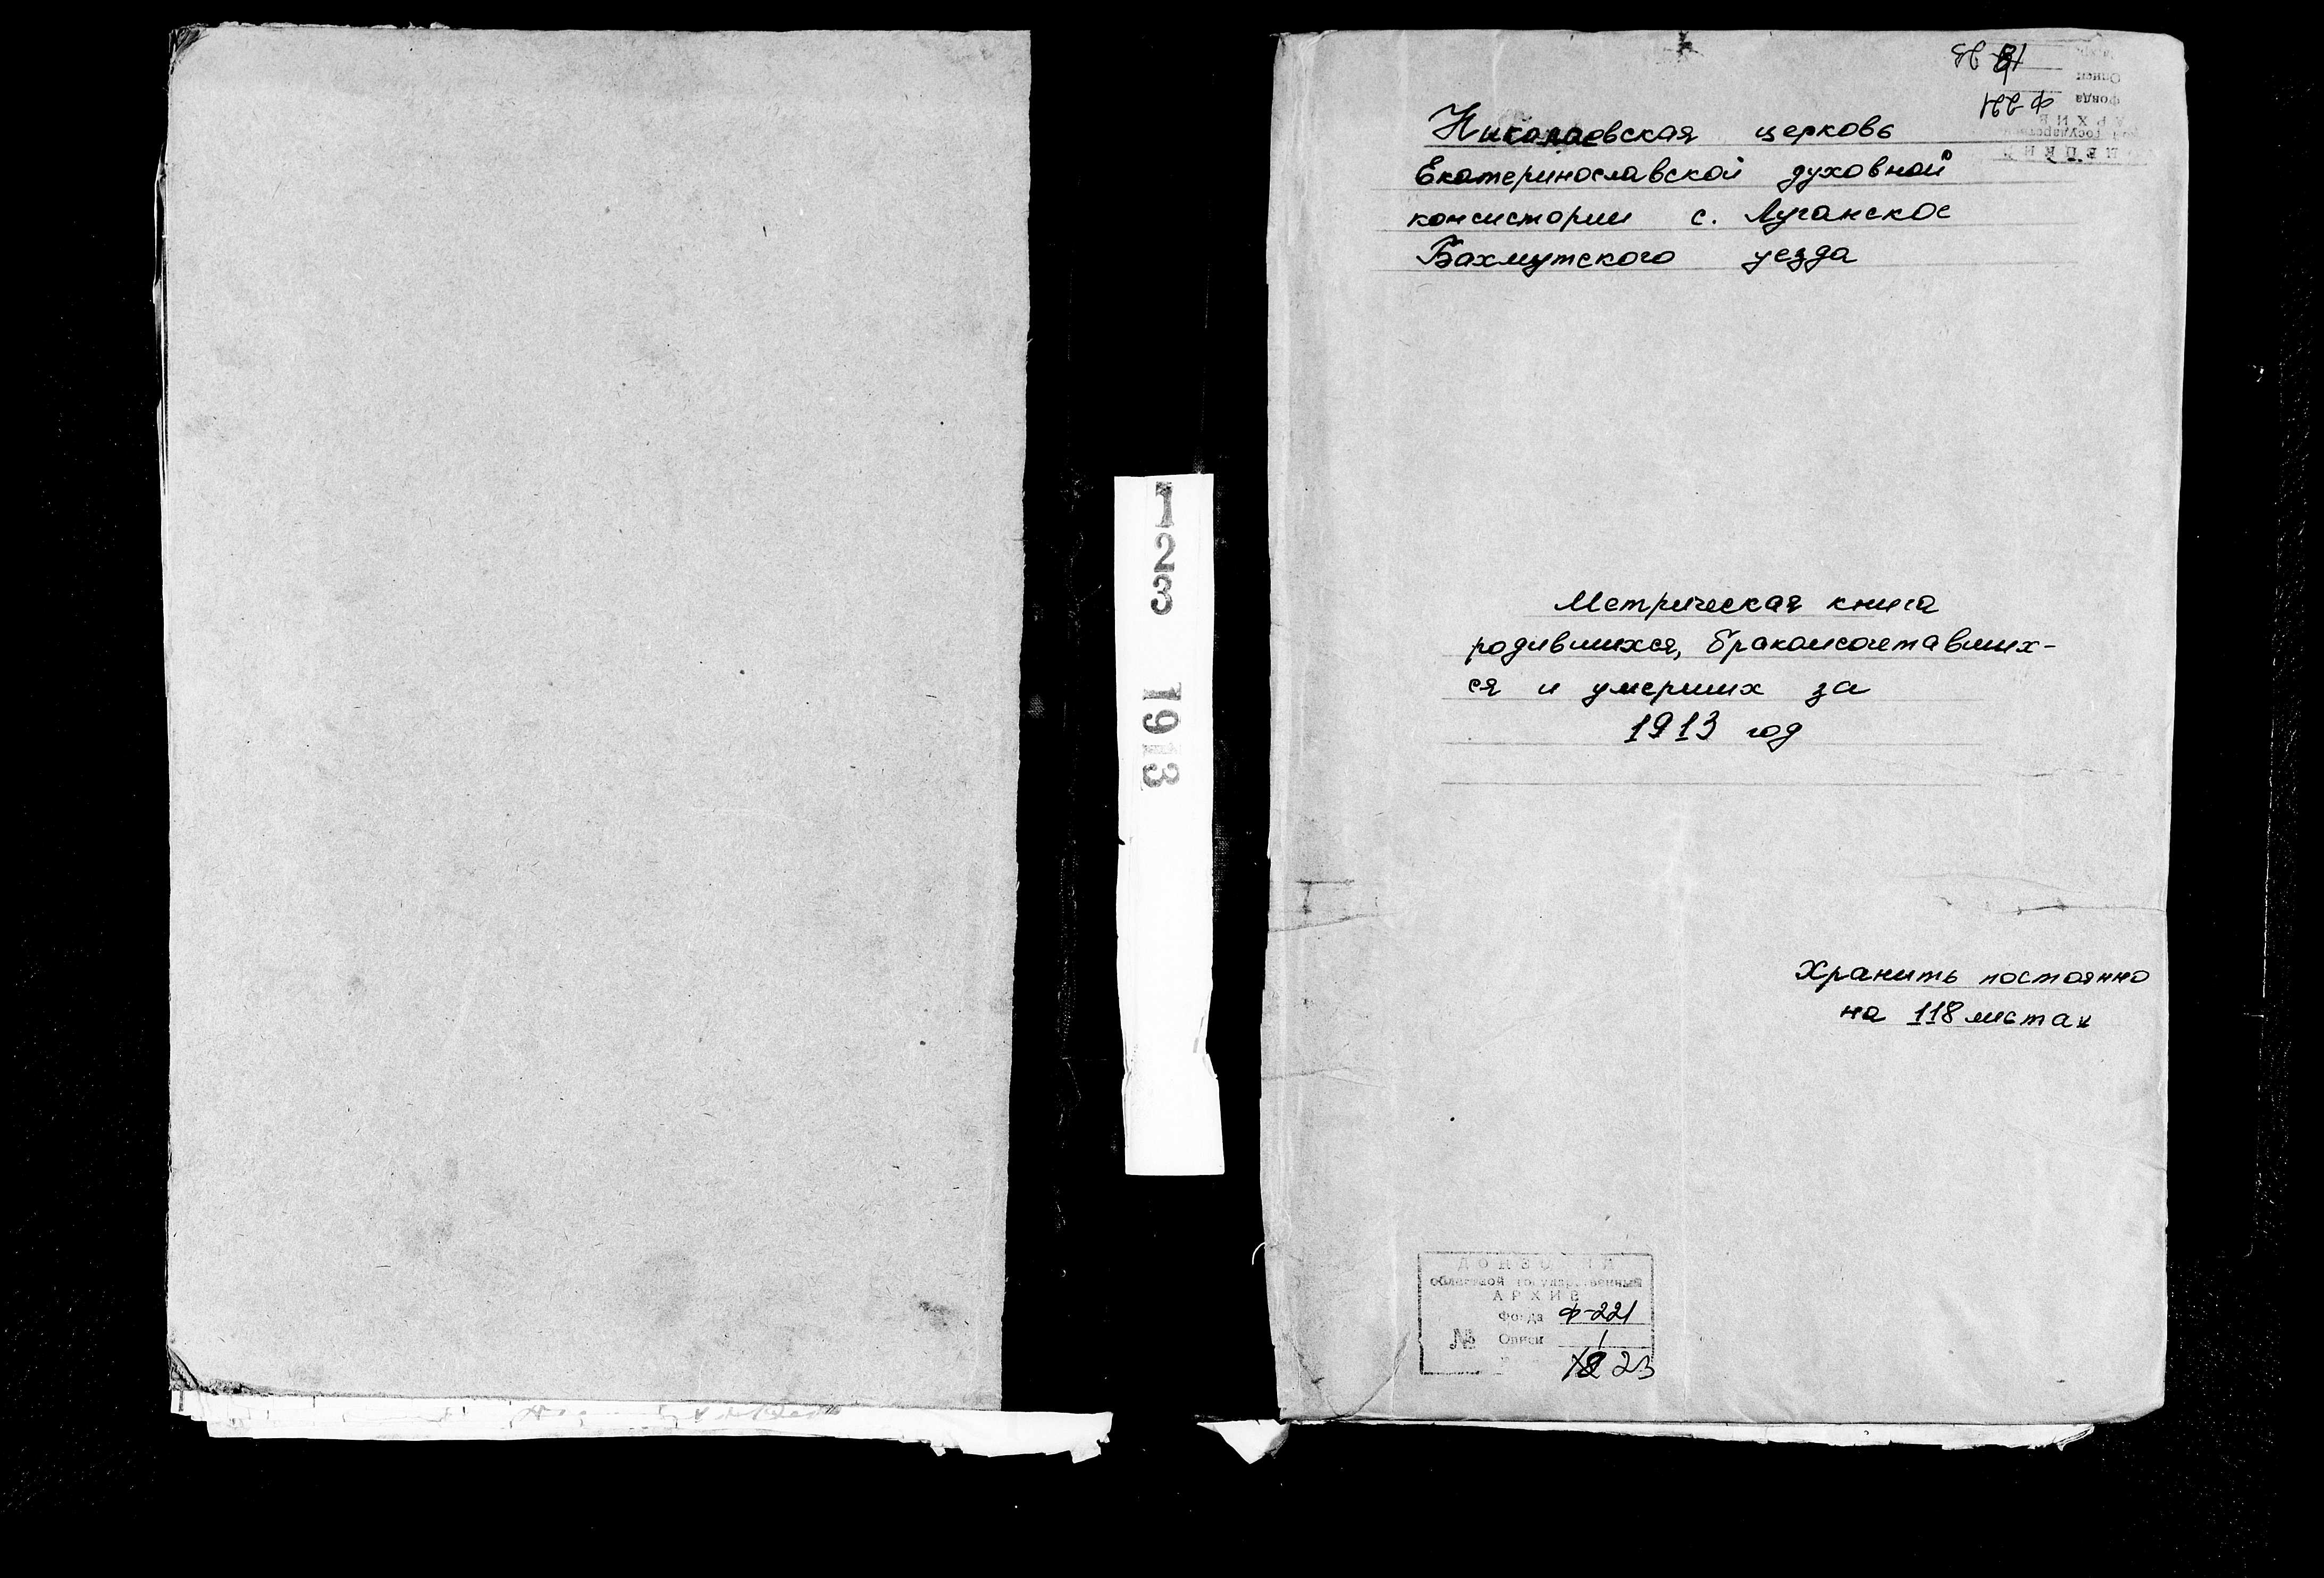 Николаевская церковь
Екатеринославской духовной
консистории с. Луганское
Бахмутского уезда
123 1913
Метрическая книга
родившихся, бракосочетавших-
ся и умерших за
1913 год
Хранить постоянно
на 118 листах
ДОНЕЦКИЙ
областной государственный
АРХИВ
Фонда Ф-221
№ Описи 1
23